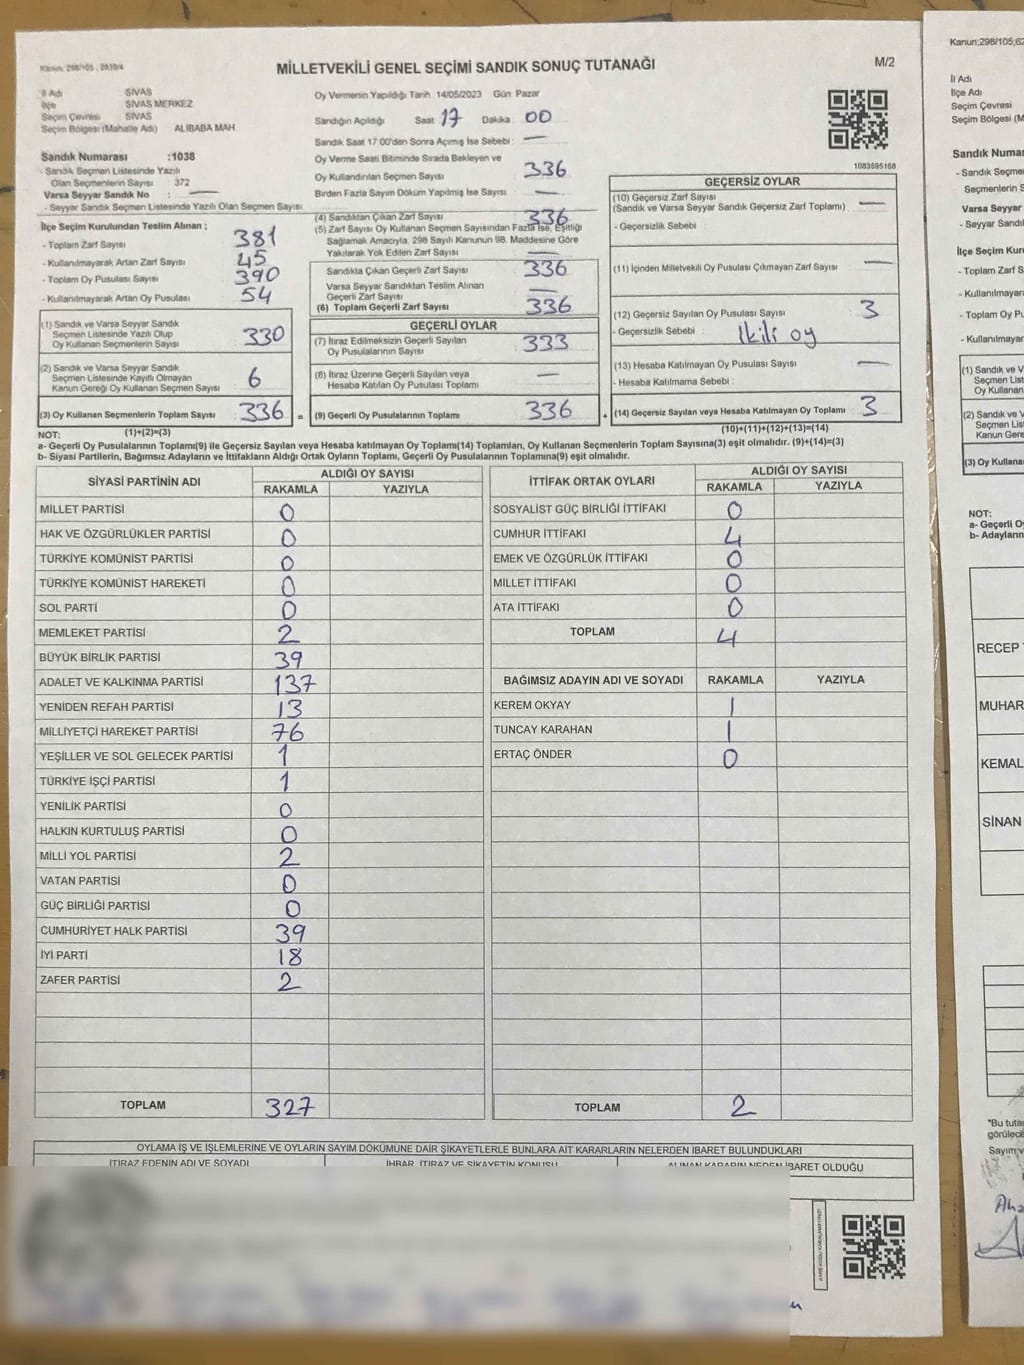 Kanun: 298/105, 2839/4
MİLLETVEKİLİ GENEL SEÇİMİ SANDIK SONUÇ TUTANAĞI
M/2
İl Adı SİVAS
İlçe SİVAS MERKEZ
Seçim Çevresi SİVAS
Seçim Bölgesi (Mahalle Adı) ALIBABA MAH.
Oy Vermenin Yapıldığı Tarih 14/05/2023 Gün: Pazar
Sandığın Açıldığı Saat 17 Dakika 00
Sandık Saat 17 00'den Sonra Açımış İse Sebebi : —
Oy Verme Saati Bitiminde Sırada Bekleyen ve
Oy Kullandırılan Seçmen Sayısı 336
Birden Fazla Sayım Döküm Yapılmış İse Sayısı —
1083595168
Sandık Numarası :1038
- Sandık Seçmen Listesinde Yazılı
Olan Seçmenlerin Sayısı : 372
Varsa Seyyar Sandık No : —
- Seyyar Sandık Seçmen Listesinde Yazılı Olan Seçmen Sayısı
İlçe Seçim Kurulundan Teslim Alınan ;
- Toplam Zarf Sayısı 381
- Kullanılmayarak Artan Zarf Sayısı 45
- Toplam Oy Pusulası Sayısı 390
- Kullanılmayarak Artan Oy Pusulası 54
(1) Sandık ve Varsa Seyyar Sandık
Seçmen Listesinde Yazılı Olup
Oy Kullanan Seçmenlerin Sayısı 330
(2) Sandık ve Varsa Seyyar Sandık
Seçmen Listesinde Kayıtlı Olmayan
Kanun Gereği Oy Kullanan Seçmen Sayısı 6
(3) Oy Kullanan Seçmenlerin Toplam Sayısı 336 =
(1)+(2)=(3)
(4) Sandıktan Çıkan Zarf Sayısı 336
(5) Zarf Sayısı Oy Kullanan Seçmen Sayısından Fazla İse, Eşitliği
Sağlamak Amacıyla, 298 Sayılı Kanunun 98. Maddesine Göre
Yakılarak Yok Edilen Zarf Sayısı —
Sandıkta Çıkan Geçerli Zarf Sayısı 336
Varsa Seyyar Sandıktan Teslim Alınan
Geçerli Zarf Sayısı —
(6) Toplam Geçerli Zarf Sayısı 336
GEÇERLİ OYLAR
(7) İtiraz Edilmeksizin Geçerli Sayılan
Oy Pusulalarının Sayısı 333
(8) İtiraz Üzerine Geçerli Sayılan veya
Hesaba Katılan Oy Pusulası Toplamı —
(9) Geçerli Oy Pusulalarının Toplamı 336 +
GEÇERSİZ OYLAR
(10) Geçersiz Zarf Sayısı
(Sandık ve Varsa Seyyar Sandık Geçersiz Zarf Toplamı) —
- Geçersizlik Sebebi
(11) İçinden Milletvekili Oy Pusulası Çıkmayan Zarf Sayısı —
(12) Geçersiz Sayılan Oy Pusulası Sayısı 3
- Geçersizlik Sebebi : İkili oy
(13) Hesaba Katılmayan Oy Pusulası Sayısı —
- Hesaba Katılmama Sebebi :
(14) Geçersiz Sayılan veya Hesaba Katılmayan Oy Toplamı 3
(10)+(11)+(12)+(13)=(14)
NOT:
a- Geçerli Oy Pusulalarının Toplamı(9) ile Geçersiz Sayılan veya Hesaba katılmayan Oy Toplamı(14) Toplamları, Oy Kullanan Seçmenlerin Toplam Sayısına(3) eşit olmalıdır. (9)+(14)=(3)
b- Siyasi Partilerin, Bağımsız Adayların ve İttifakların Aldığı Ortak Oyların Toplamı, Geçerli Oy Pusulalarının Toplamına(9) eşit olmalıdır.
SİYASİ PARTİNİN ADI ALDIĞI OY SAYISI
RAKAMLA YAZIYLA
MİLLET PARTİSİ 0
HAK VE ÖZGÜRLÜKLER PARTİSİ 0
TÜRKİYE KOMÜNİST PARTİSİ 0
TÜRKİYE KOMÜNİST HAREKETİ 0
SOL PARTİ 0
MEMLEKET PARTİSİ 2
BÜYÜK BİRLİK PARTİSİ 39
ADALET VE KALKINMA PARTİSİ 137
YENİDEN REFAH PARTİSİ 13
MİLLİYETÇİ HAREKET PARTİSİ 76
YEŞİLLER VE SOL GELECEK PARTİSİ 1
TÜRKİYE İŞÇİ PARTİSİ 1
YENİLİK PARTİSİ 0
HALKIN KURTULUŞ PARTİSİ 0
MİLLİ YOL PARTİSİ 2
VATAN PARTİSİ 0
GÜÇ BİRLİĞİ PARTİSİ 0
CUMHURİYET HALK PARTİSİ 39
İYİ PARTİ 18
ZAFER PARTİSİ 2
TOPLAM 327
İTTİFAK ORTAK OYLARI ALDIĞI OY SAYISI
RAKAMLA YAZIYLA
SOSYALİST GÜÇ BİRLİĞİ İTTİFAKI 0
CUMHUR İTTİFAKI 4
EMEK VE ÖZGÜRLÜK İTTİFAKI 0
MİLLET İTTİFAKI 0
ATA İTTİFAKI 0
TOPLAM 4
BAĞIMSIZ ADAYIN ADI VE SOYADI RAKAMLA YAZIYLA
KEREM OKYAY 1
TUNCAY KARAHAN 1
ERTAÇ ÖNDER 0
TOPLAM 2
OYLAMA İŞ VE İŞLEMLERİNE VE OYLARIN SAYIM DÖKÜMÜNE DAİR ŞİKAYETLERLE BUNLARA AİT KARARLARIN NELERDEN İBARET BULUNDUKLARI
İTİRAZ EDENİN ADI VE SOYADI İHBAR, İTİRAZ VE ŞİKAYETİN KONUSU ALINAN KARARIN NEDEN İBARET OLDUĞU
Kanun;298/105;62
İl Adı
İlçe Adı
Seçim Çevresi
Seçim Bölgesi (M
Sandık Numar
- Sandık Seçme
Seçmenlerin S
Varsa Seyyar
- Seyyar Sandı
İlçe Seçim Kuru
- Toplam Zarf S
- Kullanılmayar
- Toplam Oy Pu
- Kullanılmayar
(1) Sandık ve V
Seçmen List
Oy Kullanan
(2) Sandık ve V
Seçmen List
Kanun Gere
(3) Oy Kullana
NOT:
a- Geçerli Oy
b- Adayların
RECEP
MUHAR
KEMAL
SİNAN
*Bu tuta
görülece
Sayım v